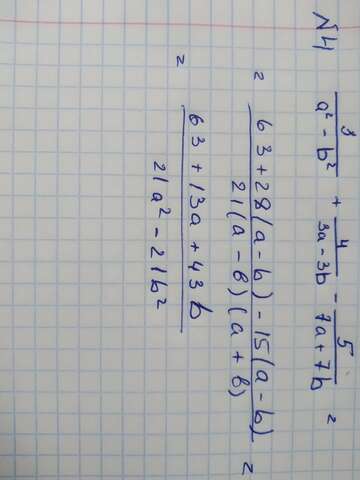 N4
3/(a² - b²) + 4/(3a-3b) - 5/(7a+7b) =
= (63+28(a-b)-15(a-b))/(21(a-b)(a+b)) =
= (63+13a+43b)/(21a²-21b²)